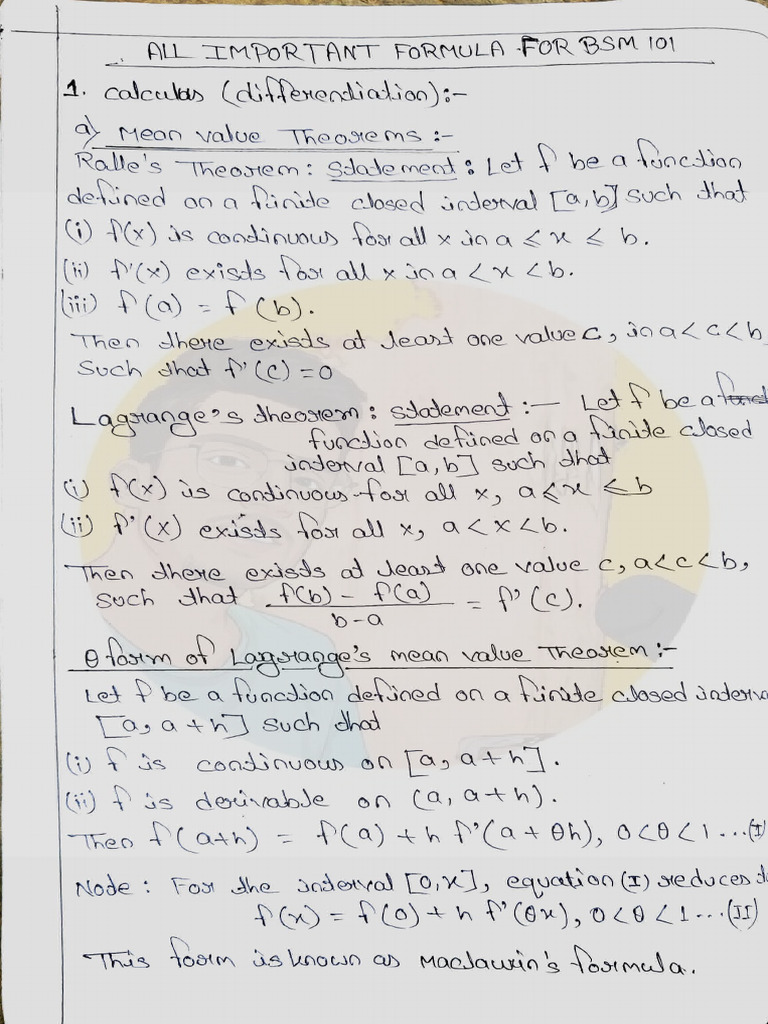 ALL IMPORTANT FORMULA FOR BSM 101
1. Calculas (differendiation):-
a) Mean value Theorems :-
Ralle's Theorem: Statement: Let f be a function
defined on a finite closed interval [a,b] such that
(i) f(x) is continuous for all x in a ≤ x ≤ b.
(ii) f'(x) exists for all x in a < x < b.
(iii) f(a) = f(b).
Then there exists at least one value c, in a < c < b
Such that f'(c) = 0
Lagrange's theorem: Statement :- Let f be a funct
function defined on a finite closed
interval [a,b] such that
(i) f(x) is continuous for all x, a ≤ x ≤ b
(ii) f'(x) exists for all x, a < x < b.
Then there exists at least one value c, a<c<b,
such that f(b) - f(a) / b-a = f'(c).
θ form of Lagrange's mean value Theorem:-
Let f be a function defined on a finite closed interv
[a, a+h] such that
(i) f is continuous on [a, a+h].
(ii) f is derivable on (a, a+h).
Then f(a+h) = f(a) + h f'(a + θh), 0<θ<1 ...(I)
Node: For the interval [0,x], equation (I) reduces t
f(x) = f(0) + h f'(θx), 0<θ<1 ...(II)
This form is known as Maclawrin's formula.